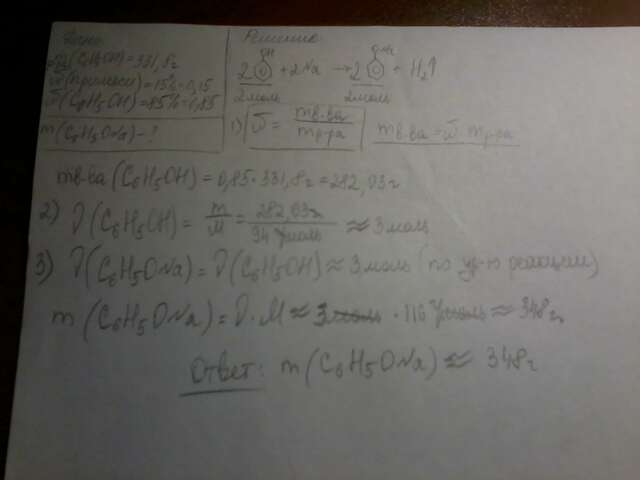 Дано:
m(C6H5OH)=331,8г
ω(примеси)=15%=0,15
ω(C6H5OH)=85%=0,85
m(C6H5ONa)-?
Решение
OH ONa
2 + 2Na → 2 + H2↑
2моль 2моль
1) ω = mв-ва / mр-ра mв-ва = ω · mр-ра
mв-ва (C6H5OH) = 0,85 · 331,8г = 282,03г
2) ν(C6H5OH) = m/M = 282,03г / 94 г/моль ≈ 3 моль
3) ν(C6H5ONa) = ν(C6H5OH) ≈ 3 моль (по ур-ю реакции)
m (C6H5ONa) = ν · M ≈ 3 моль · 116 г/моль ≈ 348г
Ответ: m(C6H5ONa) ≈ 348г